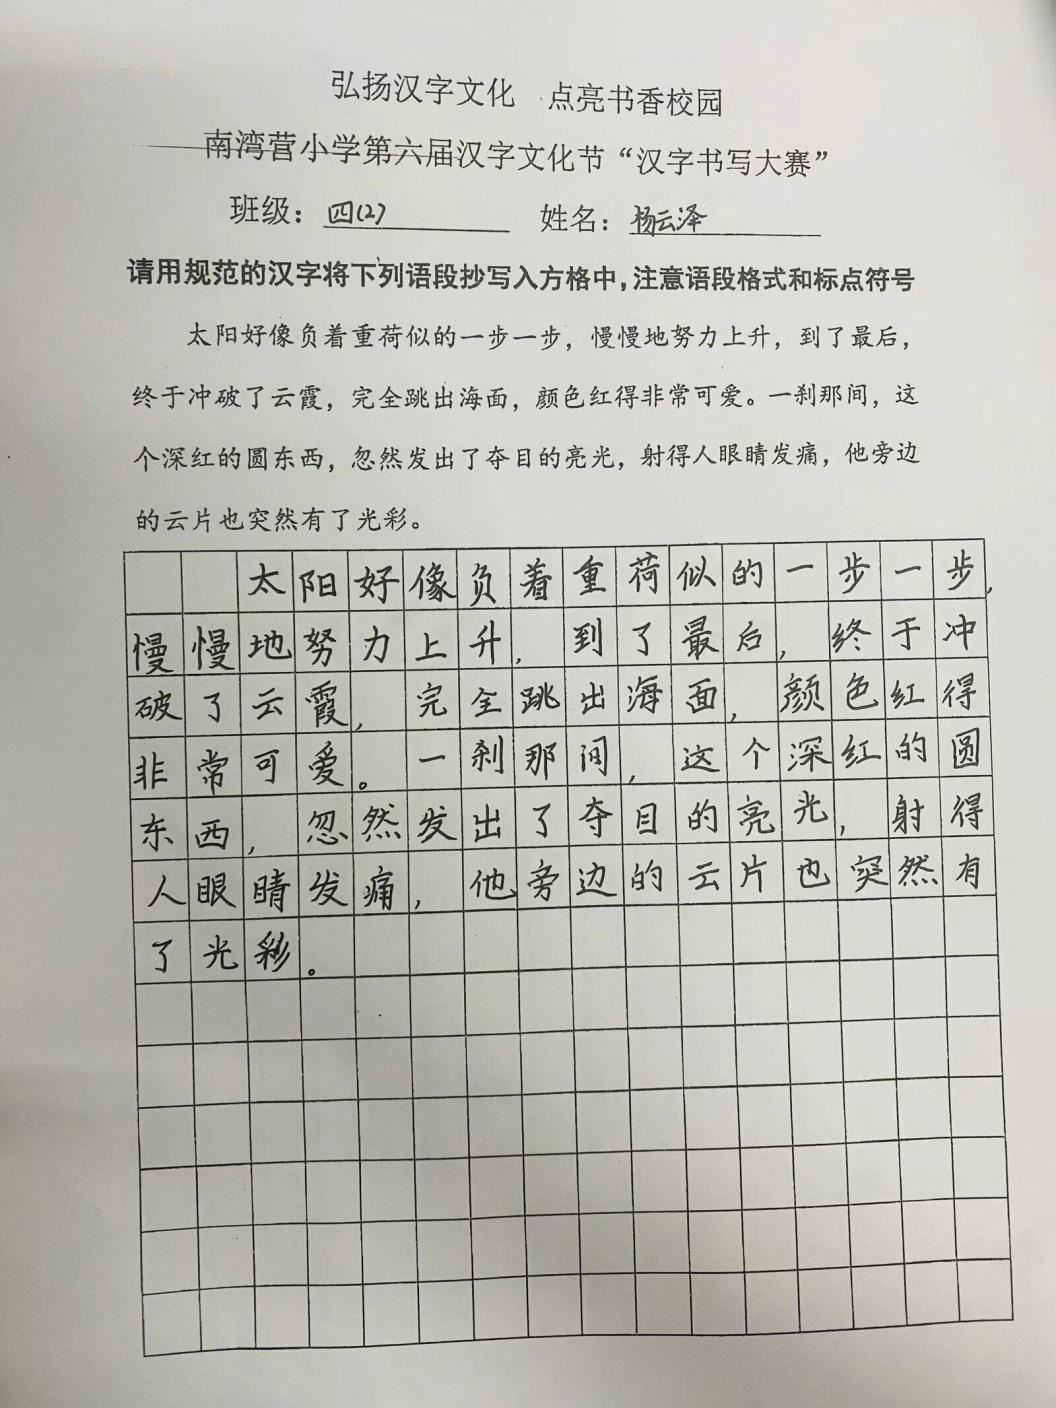 弘扬汉字文化 点亮书香校园
南湾营小学第六届汉字文化节“汉字书写大赛”
班级：四(2) 姓名：杨云泽
请用规范的汉字将下列语段抄写入方格中，注意语段格式和标点符号
太阳好像负着重荷似的一步一步，慢慢地努力上升，到了最后，
终于冲破了云霞，完全跳出海面，颜色红得非常可爱。一刹那间，这
个深红的圆东西，忽然发出了夺目的亮光，射得人眼睛发痛，他旁边
的云片也突然有了光彩。
太阳好像负着重荷似的一步一步，
慢慢地努力上升，到了最后，终于冲
破了云霞，完全跳出海面，颜色红得
非常可爱。一刹那间，这个深红的圆
东西，忽然发出了夺目的亮光，射得
人眼睛发痛，他旁边的云片也突然有
了光彩。